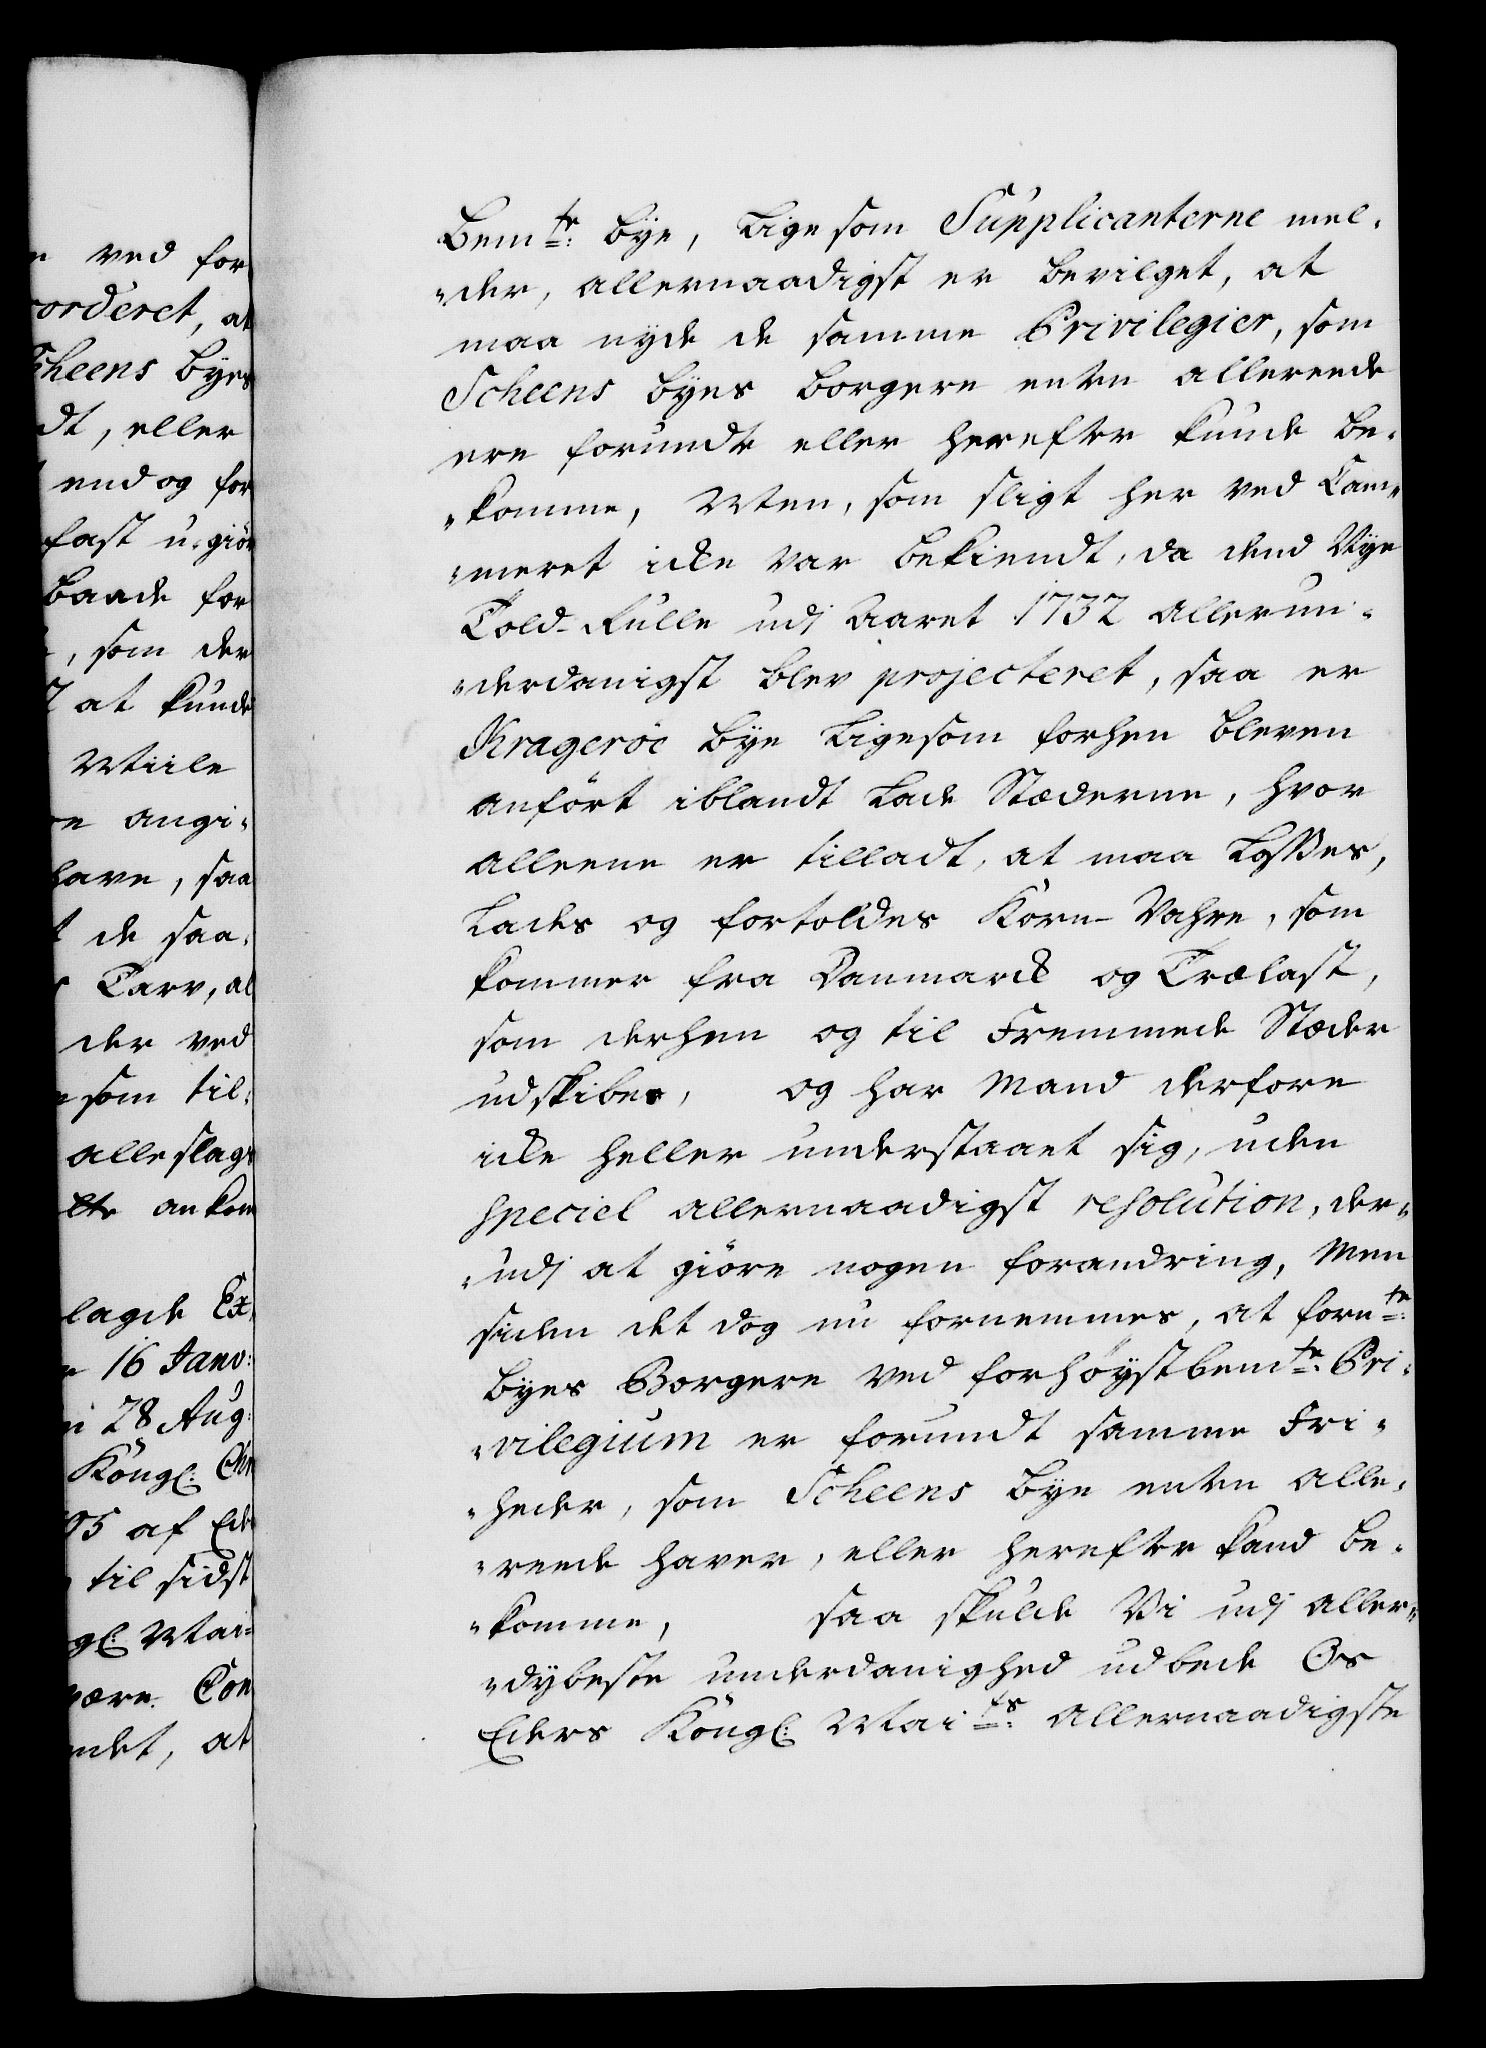 ved for
orderet, at
Scheens Byes
dt, eller
end og for
fast u-giör
baade for
, som der
at kunde
Miile
angi-
have, saa
de saa-
Tarv, al
der ved
som til-
alle slags
ankom
lagde Ex
16 Janv:
28 Aug:
Kongl: Chr
95 af Ede
til sidst
gl: Mai-
være Con
ndet, at
Bemte: Bye, Ligesom Supplicanterne mel-
-der, allernaadigst er bevilget, at
maa nyde de samme Privilegier, som
Scheens Byes borgere enten allereede
ere forundte eller herefter kunde be-
-komme, Men, som sligt her ved Cam-
-meret icke var bekiendt, da dend Nye
Told-Rulle udj Aaret 1732 allerun-
-derdanigst blev projecteret, saa er
Krageröe Bye Ligesom forhen bleven
anfört iblandt Lade Stæderne, hvor
alleene er tilladt, at maa Lossses,
Lades og fortoldes Korn-Vahre, som
kommer fra Danmarck og Trælast,
som derhen og til Fremmede Stæder
udskibes, og har Mand derfore
icke heller understaaet sig, uden
speciel allernaadigst resolution, der-
-udj at giöre nogen forandring, Men
siden det dog nu fornemmes, at fornte:
Byes Borgere ved forhöystbemte: Pri-
-vilegium er forundt samme Fri-
-heder, som Scheens Bye enten alle-
-reede haver, eller herefter kand be-
-komme, saa skulde Vi udj aller-
-dybeste underdanighed udbede Os
Eders Kongl: Maits: allernaadigste